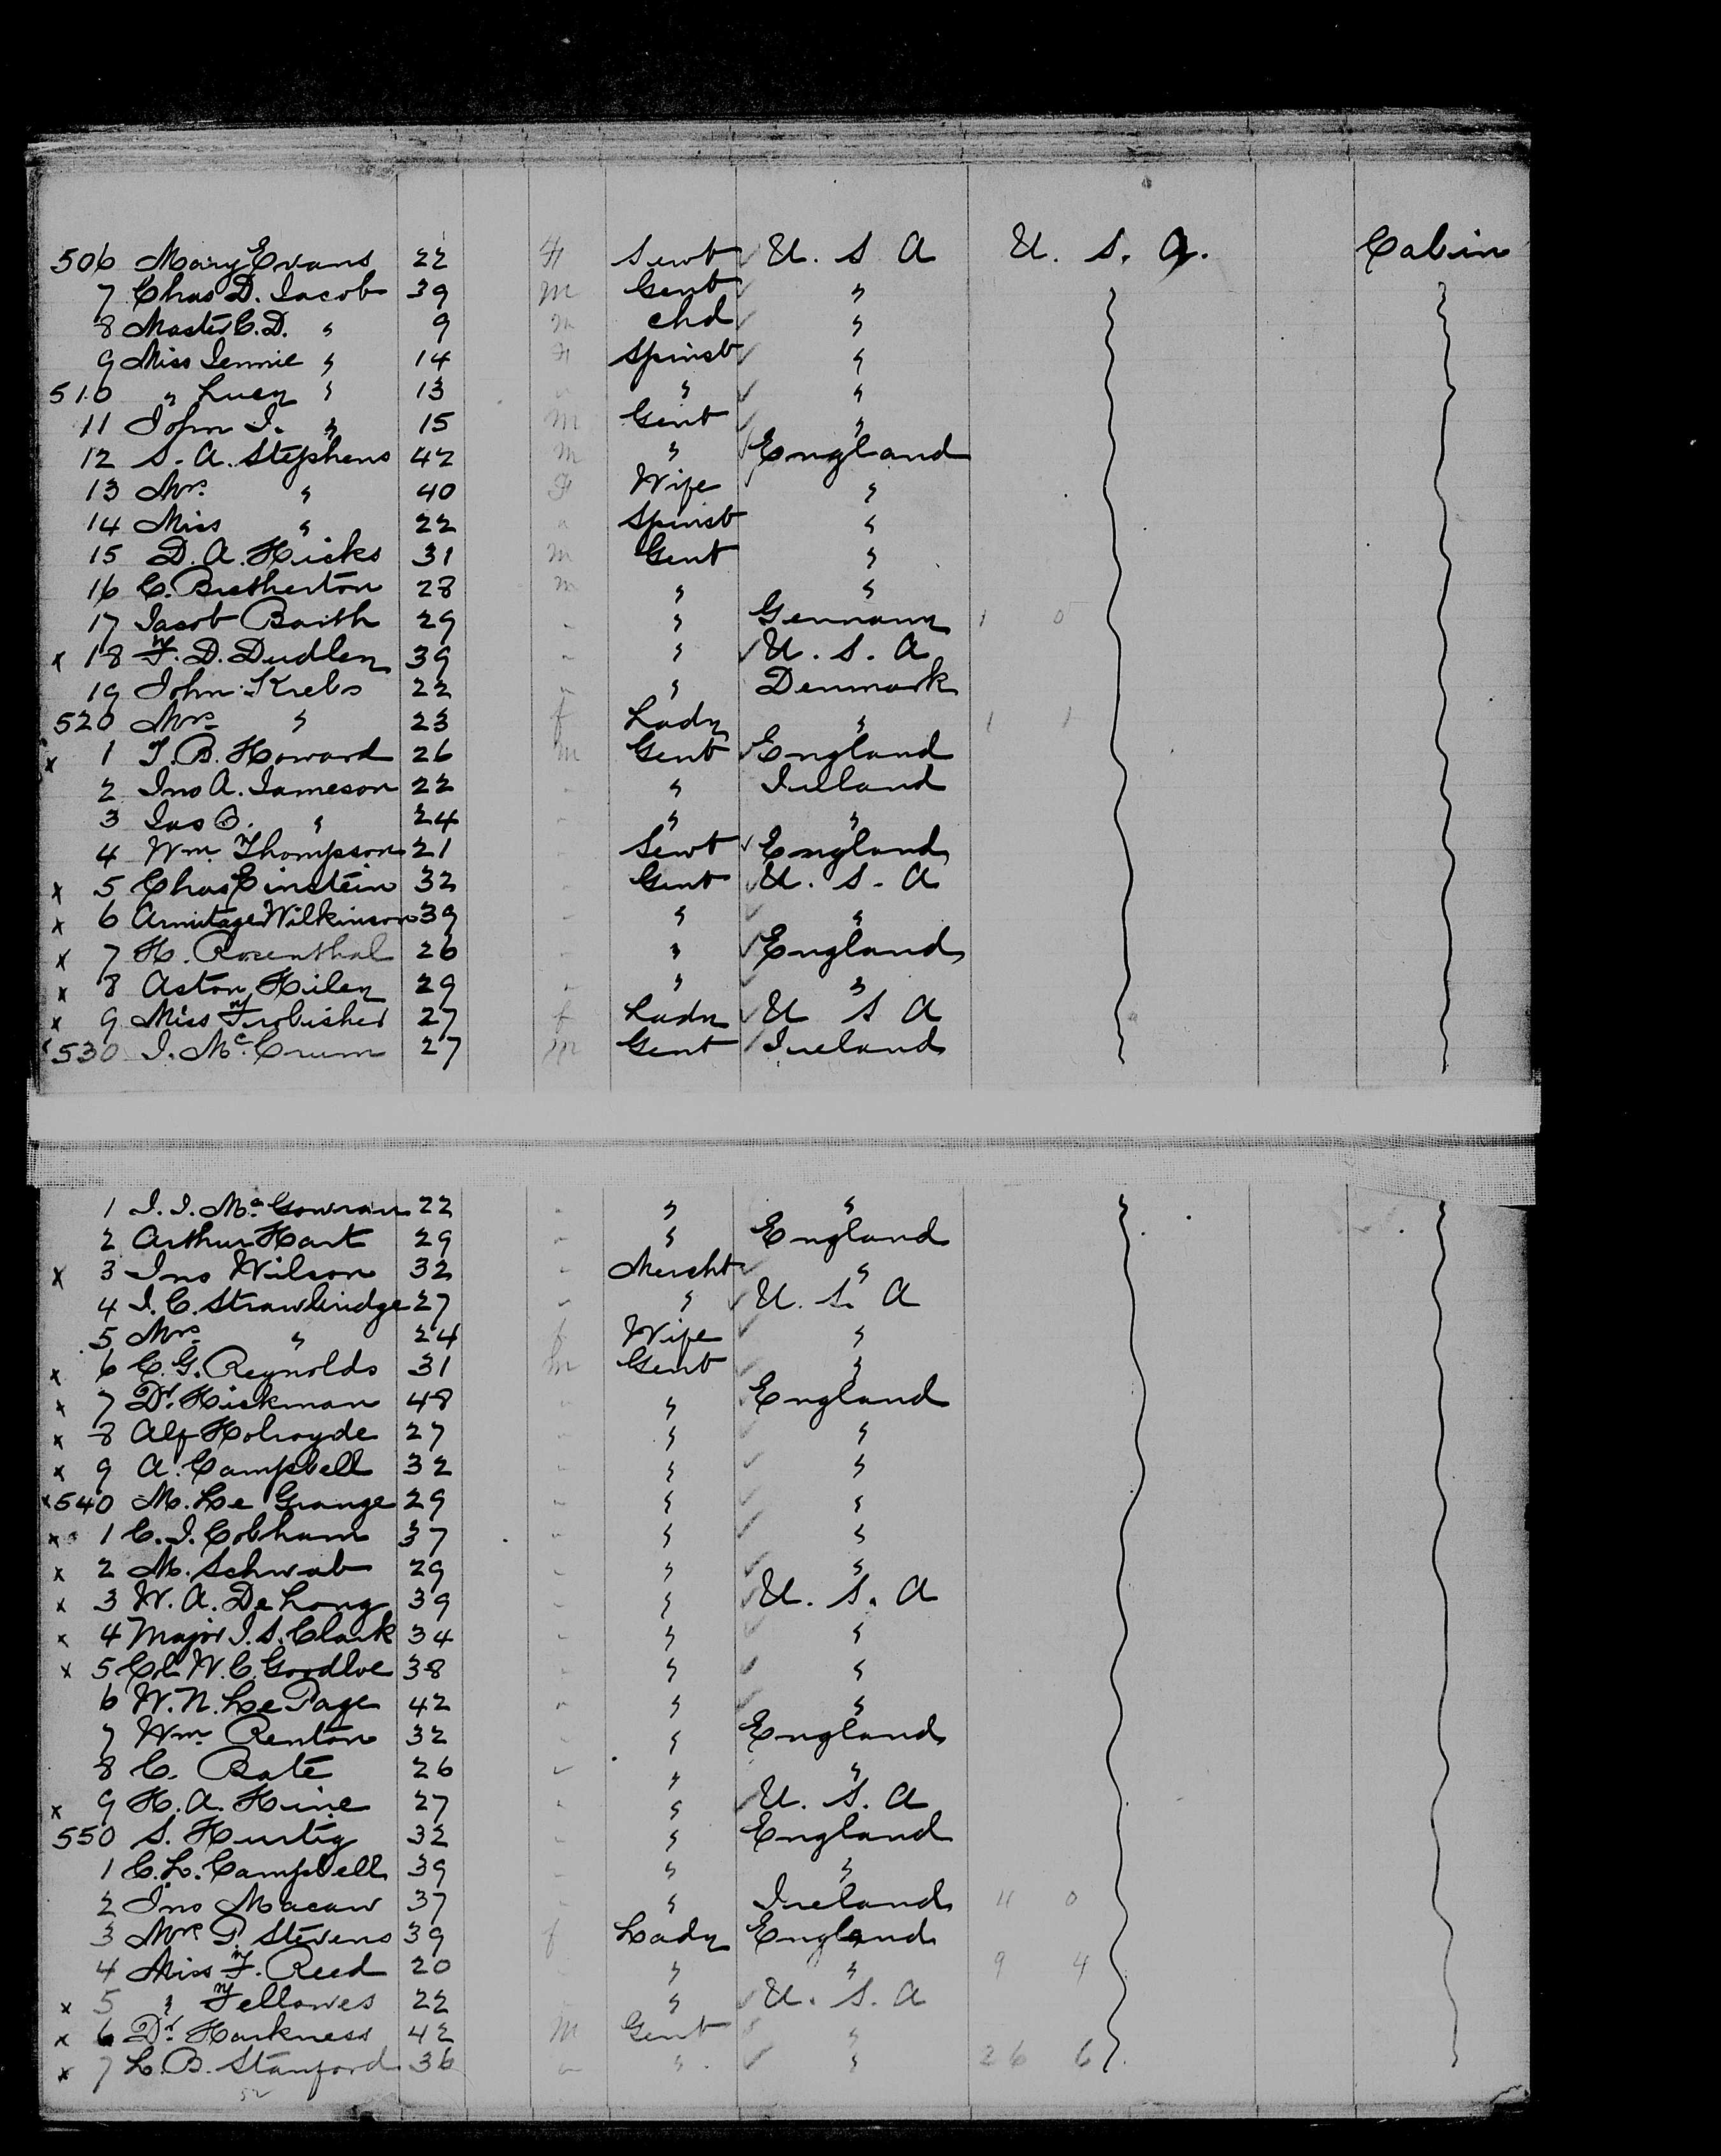 506 Mary Evans 22 F Servt U. S A U. S. A. Cabin
7 Chas D. Jacob 39 m Gent "
8 Master C. D. " 9 m chd "
9 Miss Jennie " 14 F Spinst "
510 " Lucy " 13 " " "
11 John I. " 15 m Gent "
12 S. A. Stephens 42 m " England
13 Mrs " 40 F Wife "
14 Miss " 22 " Spinst "
15 D. A. Hicks 31 m Gent "
16 C. Bretherton 28 m " "
17 Jacob Baith 29 " Germany 1 0
x 18 F. D. Dudley 39 " U. S. A
19 John Krebs 22 " Denmark
520 Mrs " 23 f Lady " 1 1
x 1 T. B. Howard 26 m Gent England
2 Jno A. Jameson 22 " Ireland
3 Jas O. " 24 " "
4 Wm Thompson 21 Servt England
x 5 Chas Einstein 32 Gent U. S. A
x 6 Armitage Wilkinson 39 " "
x 7 H. Rosenthal 26 " England
x 8 Aston Hiley 29 " "
x 9 Miss Frobisher 27 f Lady U S A
530 J. Mc Crum 27 m Gent Ireland
1 J. J. Mc Gowran 22 " "
2 Arthur Hart 29 " England
x 3 Jno Wilson 32 Mercht "
4 J. C. Strawbridge 27 " U. S. A
5 Mrs " 24 f Wife "
x 6 C. G. Reynolds 31 m Gent "
x 7 Dr Hickman 48 " England
x 8 Alf Holroyde 27 " "
x 9 A. Campbell 32 " "
x 540 M. Le Grange 29 " "
x 1 C. J. Cobham 37 " "
x 2 M. Schwab 29 " "
x 3 W. A. De Long 39 " U. S. A
x 4 Major J. S. Clark 34 " "
x 5 Col W. C. Goodloe 38 " "
6 W. N. Le Page 42 " "
7 Wm Renton 32 " England
8 C. Bate 26 " "
x 9 H. A. Hine 27 " U. S. A
550 S. Hurtig 32 " England
1 C. L. Campbell 39 " "
2 Jno Macaw 37 " Ireland 4 0
3 Mrs P. Stevens 39 f Lady England
4 Miss F. Reed 20 " " 9 4
x 5 " Fellowes 22 " U. S. A
x 6 Dr Harkness 42 M Gent "
x 7 L. B. Stanford 36 " " 26 6